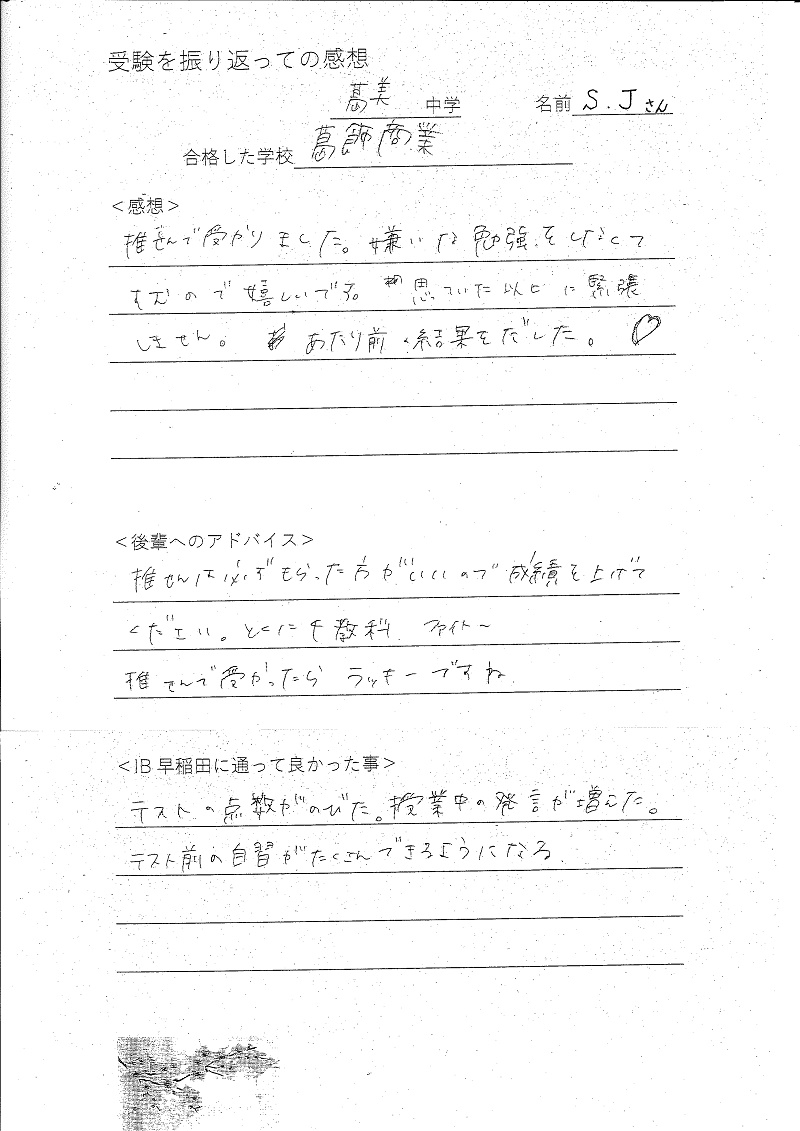 受験を振り返っての感想
葛美 中学 名前 S.Jさん
合格した学校 葛飾商業
＜感想＞
推せんで受かりました。嫌いな勉強をしなくて
すむので嬉しいです。思っていた以上に緊張
しません。 あたり前く結果をだした。♡
＜後輩へのアドバイス＞
推せんは必ずもらった方がいいので成績を上げて
ください。とくに5教科 ファイト〜
推せんで受かったら ラッキーですね
＜IB早稲田に通って良かった事＞
テストの点数がのびた。授業中の発言が増えた。
テスト前の自習がたくさんできるようになる